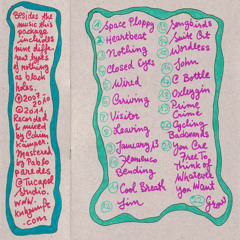 Besides the
music this
package
includes
nine diffe
rent types
of nothing
as black
holes.
©2007
2010
@2011.
Recorded
& mixed
by
Kamper.
Mastered
by Pablo
paredes
@Tucapel
Studio.
www.
.com
1 Space Ploppy
2 Heartbeat
3 Nothing
4 Closed Eyes
5 Wird
6 Arriving
7 Visitor
8 Leaving
9 January, 13
Bending
Cool Breath
Jim
Songbirds
Suite Cut
Wordless
John
C Bottle
Oxleygin
Prime
Crime
Cycling
Backwards
You Are
Free To
Think of
Whatever
You Want
22 Grow